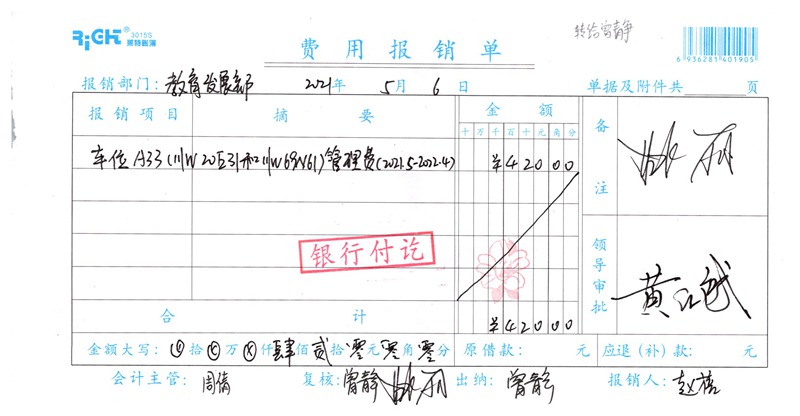 RiGHt 3015S 莱特账簿
转给曾静
费用报销单
6936281401905
报销部门：教育发展部 2021年5月6日 单据及附件共 页
报销项目 摘要 金额 备注
十万千百十元角分
车位A33(川W20E31和川W68W61)管理费(2021.5-2022.4) ¥42000
银行付讫
领导审批
合计 ¥42000
金额大写：拾万仟肆佰贰拾零元零角零分 原借款： 元 应退（补）款： 元
会计主管：周倩 复核：曾静 出纳：曾静 报销人：赵蓓